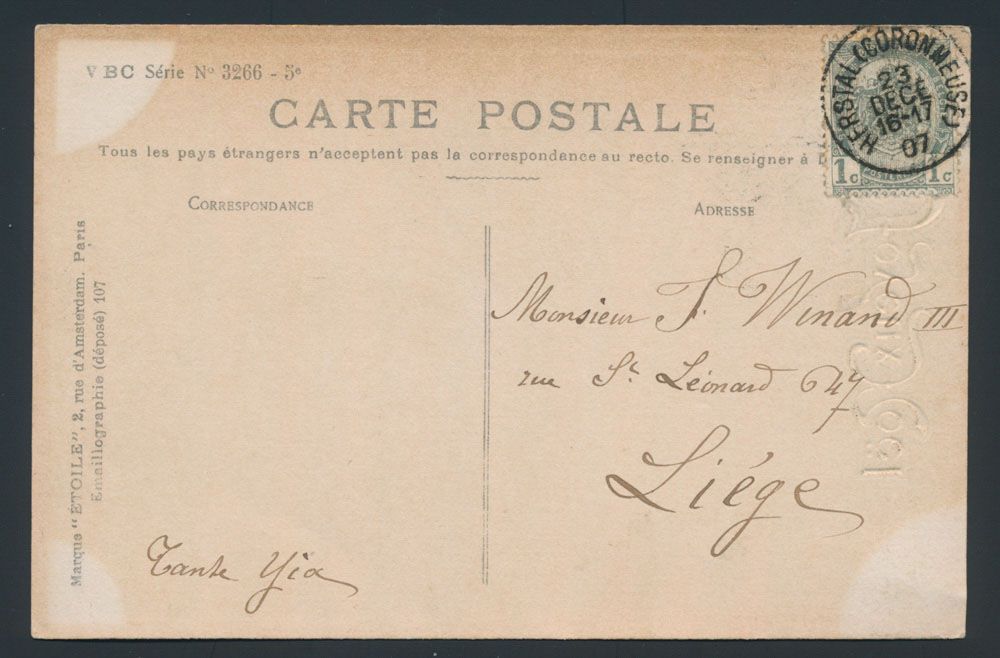 VBC Série Nº 3266 - 5e
CARTE POSTALE
Tous les pays étrangers n'acceptent pas la correspondance au recto. Se renseigner à
CORRESPONDANCE
ADRESSE
HERSTAL (CORONMEUSE)
23
DECE
16-17
07
1c 1c
Monsieur J. Winand III
rue St. Léonard 647
Liége
Tante Yia
Marque "ÉTOILE", 2, rue d'Amsterdam. Paris
Emaillographie (déposé) 107